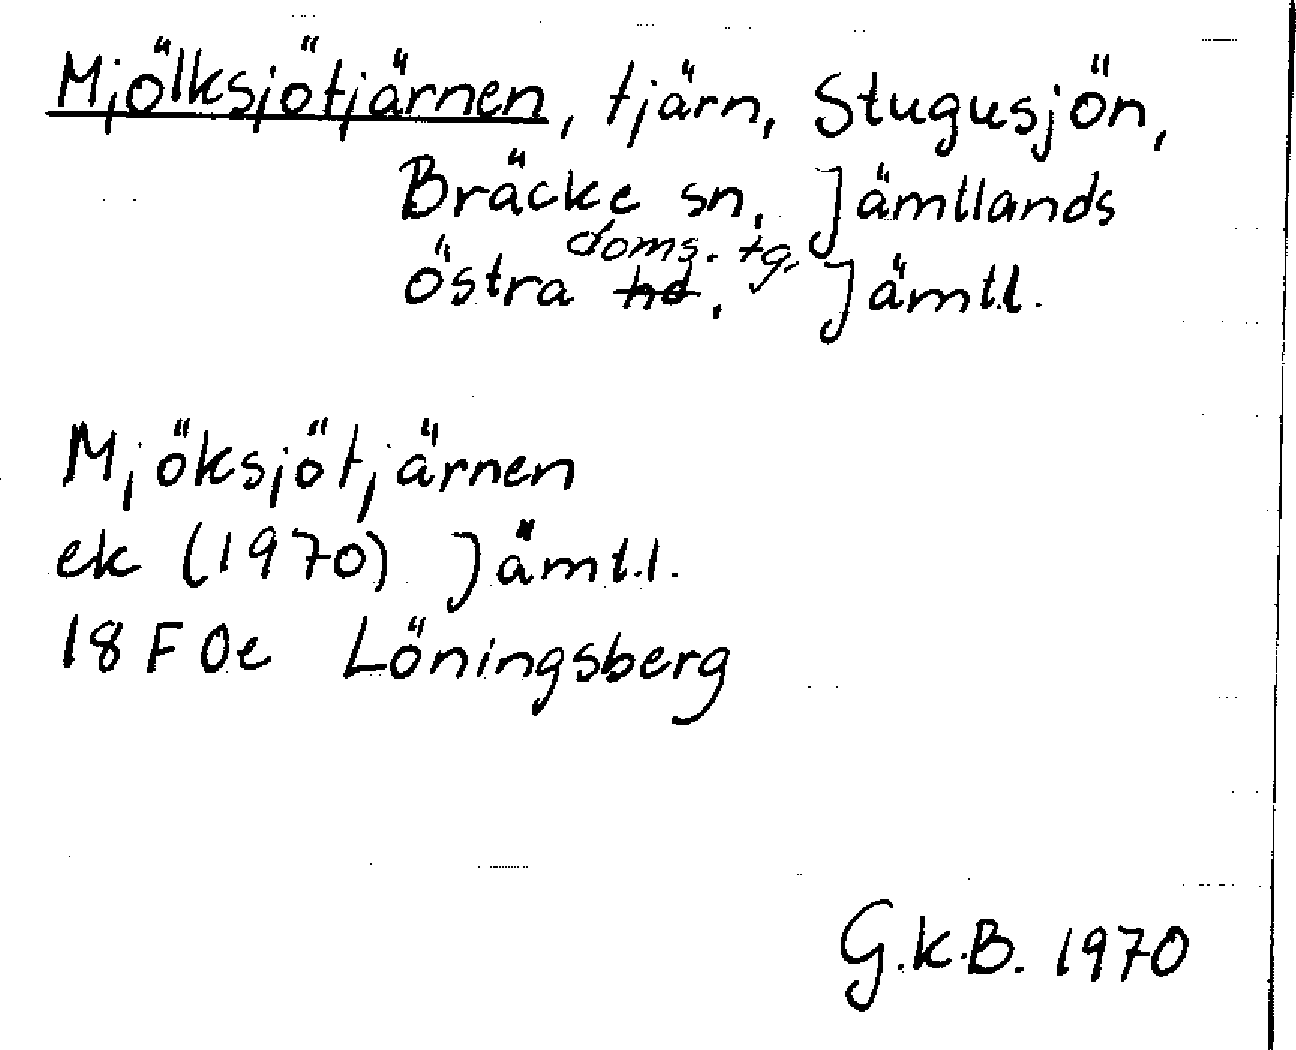 Mjölksjötjärnen, tjärn, Stugusjön,
Bräcke sn, Jämtlands
östra hd, doms. tg, Jämtl.
Mjöksjötjärnen
ek (1970) Jämtl.
18 F 0e Löningsberg
G.K.B. 1970